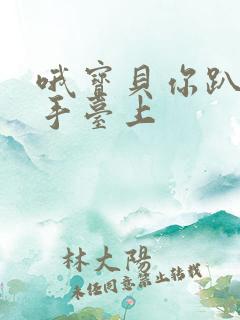 哦寶貝你趴
手臺上
林大陽
未任同意禁止轉載